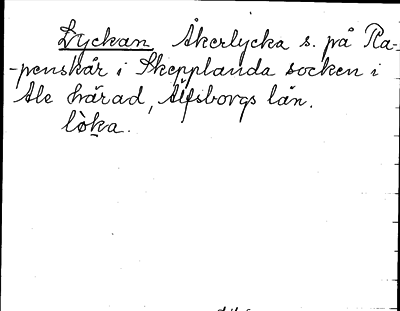 Lyckan Åkerlycka s. på Ra-
-penskår i Skepplanda socken i
Ale härad, Älfsborgs län.
lòka.